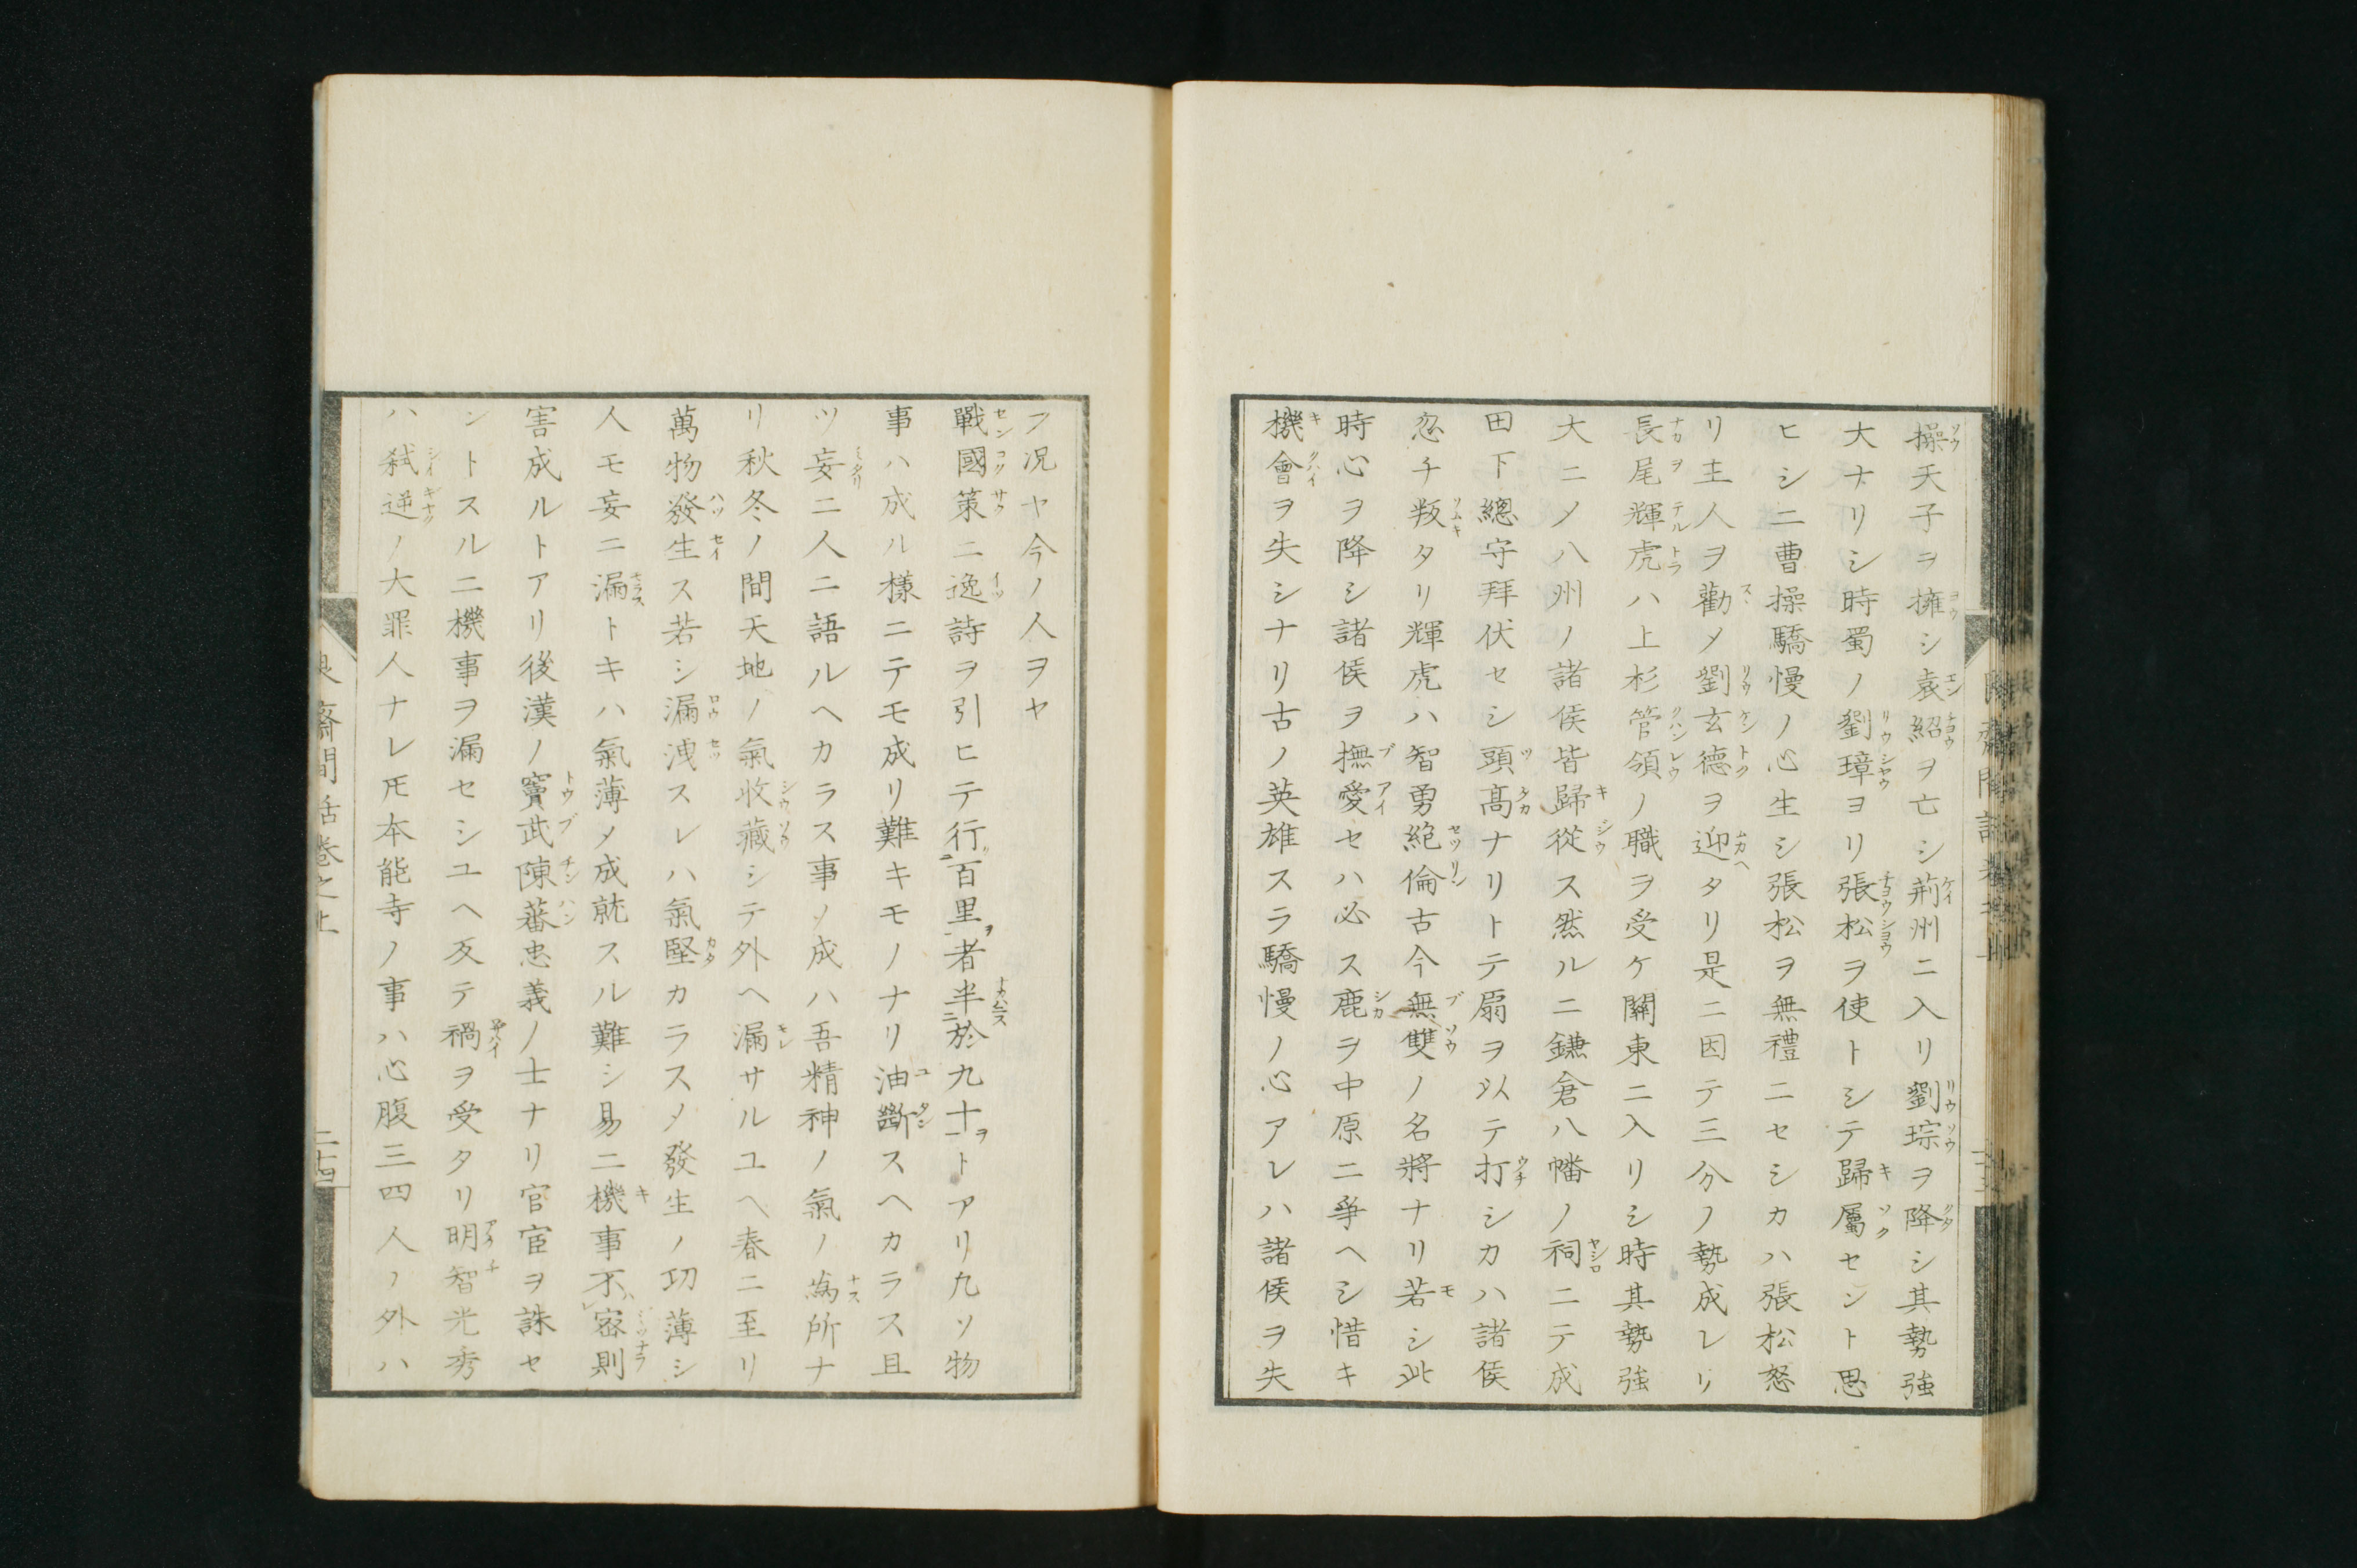 操天子ヲ擁シ袁紹ヲ亡シ荊州ニ入リ劉琮ヲ降シ其勢強
大ナリシ時蜀ノ劉璋ヨリ張松ヲ使トシテ歸屬セント思
ヒシニ曹操驕慢ノ心生シ張松ヲ無禮ニセシカハ張松怒
リ主人ヲ勸メ劉玄德ヲ迎ヘタリ是ニ因テ三分ノ勢成レリ
長尾輝虎ハ上杉管領ノ職ヲ受ケ關東ニ入リシ時其勢強
大ニメ八州ノ諸侯皆歸從ス然ルニ鎌倉八幡ノ祠ニテ成
田下總守拜伏セシ頭髙ナリトテ扇ヲ以テ打シカハ諸侯
忽チ叛タリ輝虎ハ智勇絶倫古今無雙ノ名將ナリ若シ此
時心ヲ降シ諸侯ヲ撫愛セハ必ス鹿ヲ中原ニ爭ヘシ惜キ
機會ヲ失シナリ古ノ英雄スラ驕慢ノ心アレハ諸侯ヲ失
フ况ヤ今ノ人ヲヤ
戰國策ニ逸詩ヲ引ヒテ行百里者半於九十トアリ凡ソ物
事ハ成ル樣ニテモ成リ難キモノナリ油斷スヘカラス且
ツ妄ニ人ニ語ルヘカラス事ノ成ハ吾精神ノ氣ノ爲所ナ
リ秋冬ノ間天地ノ氣收藏シテ外ヘ漏サルユヘ春ニ至リ
萬物發生ス若シ漏洩スレハ氣堅カラスメ發生ノ功薄シ
人モ妄ニ漏トキハ氣薄メ成就スル難シ易ニ機事不密則
害成ルトアリ後漢ノ竇武陳蕃忠義ノ士ナリ官宦ヲ誅セ
ントスルニ機事ヲ漏セシユヘ反テ禍ヲ受タリ明智光秀
ハ弑逆ノ大罪人ナレ𪜈本能寺ノ事ハ心腹三四人ノ外ハ
齋間話卷之上
二十四